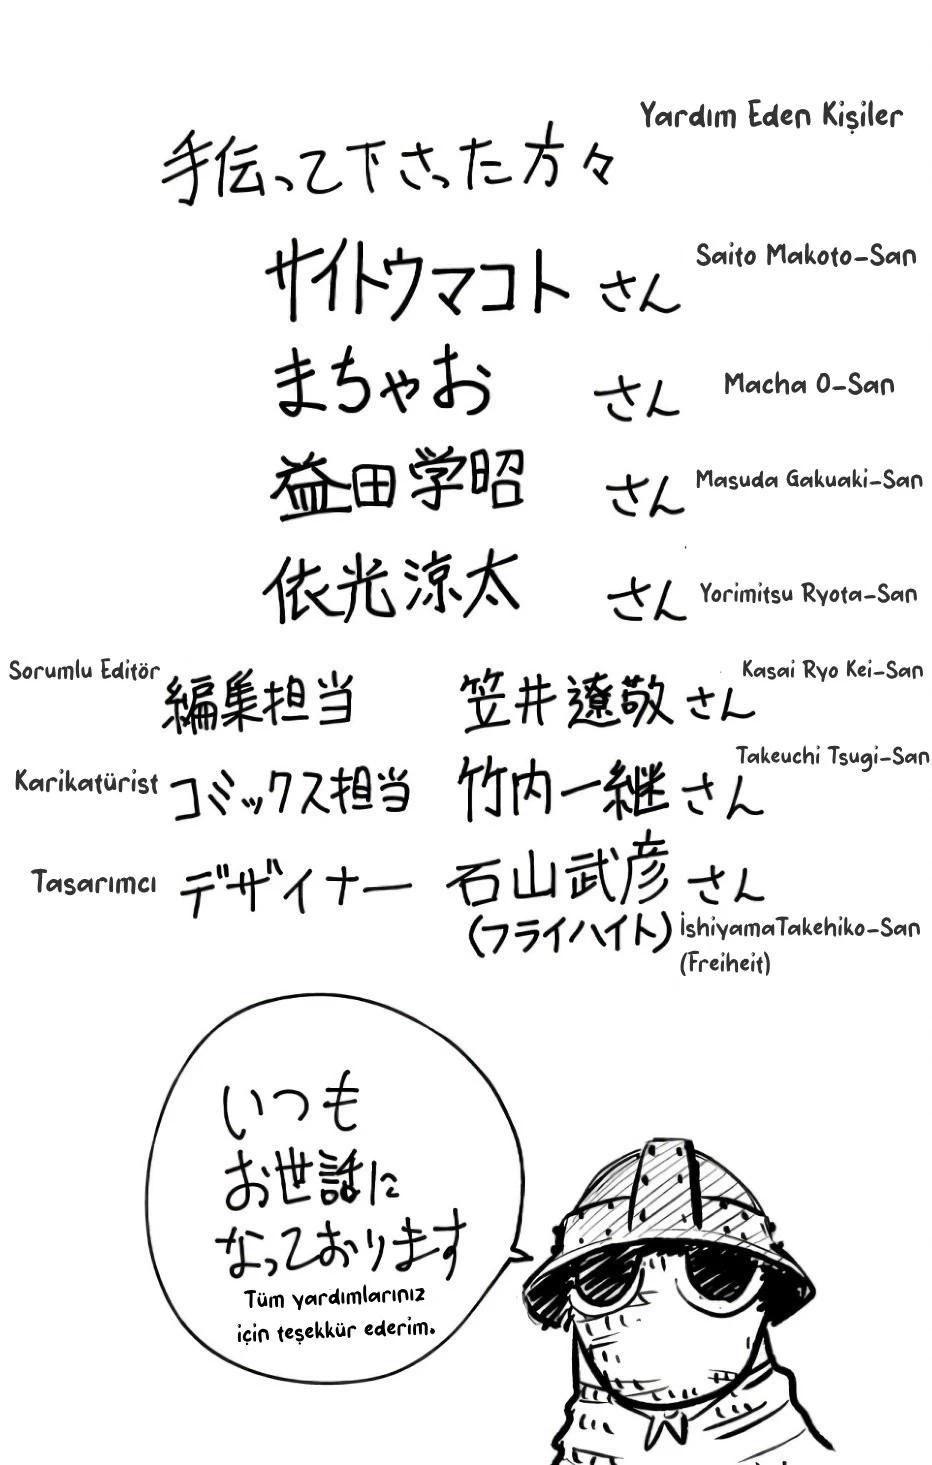 Yardım Eden Kişiler
手伝って下さった方々
サイトウマコト さん
Saito Makoto-San
まちゃお さん
Macha O-San
益田学昭 さん
Masuda Gakuaki-San
依光涼太 さん
Yorimitsu Ryota-San
Sorumlu Editör
編集担当 笠井遼敬さん
Kasai Ryo Kei-San
Karikatürist
コミックス担当 竹内一継さん
Takeuchi Tsugi-San
Tasarımcı
デザイナー 石山武彦さん
(フライハイト)
İshiyamaTakehiko-San
(Freiheit)
いつも
お世話に
なっております
Tüm yardımlarınız
için teşekkür ederim.